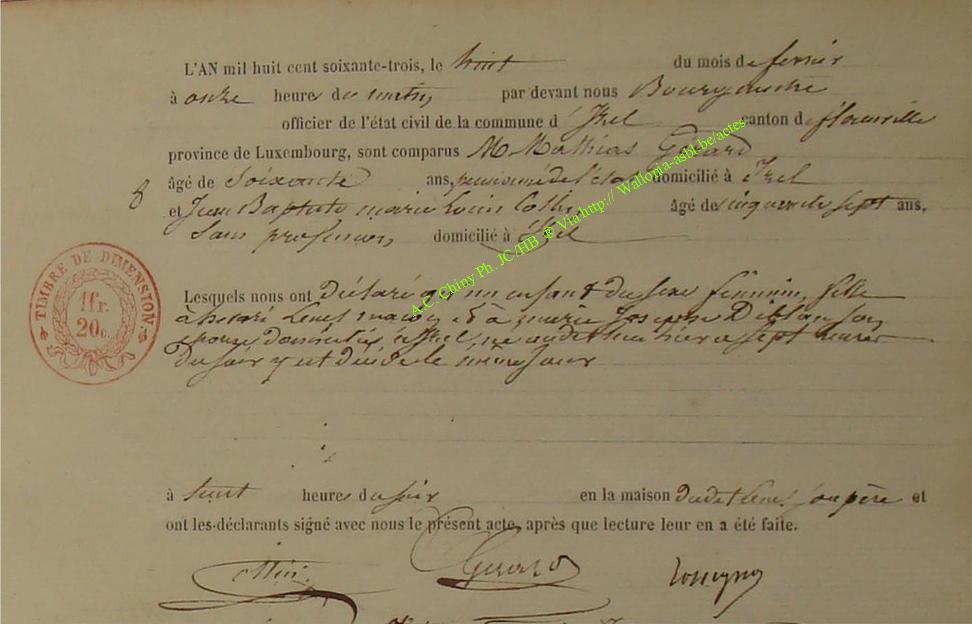 L'AN mil huit cent soixante-trois, le huit du mois de fevrier
à onze heures du matin par devant nous Bourgmestre
officier de l'état civil de la commune d'Izel canton de florenville
province de Luxembourg, sont comparus M Mathias Gérard
âgé de Soixante ans, pensionné de l'état domicilié à Izel
8
et Jean Baptiste marie Louis âgé de cinquante sept ans,
Sans profession domicilié à Izel
TIMBRE DE DIMENSION
1fr.
20c.
Lesquels nous ont Déclaré qu' un enfant du sexe féminin, fille
à et à marie Josephe son
épouse domiciliés à Izel, né audit lieu hier a sept heures
Du soir y est décédé le même jour
à huit heures du soir en la maison dudit son père et
ont les-déclarants signé avec nous le présent acte, après que lecture leur en a été faite.
Gerard
A.C. Chiny Ph. JC/HB @ Via http:// Wallonia-asbl.be/actes